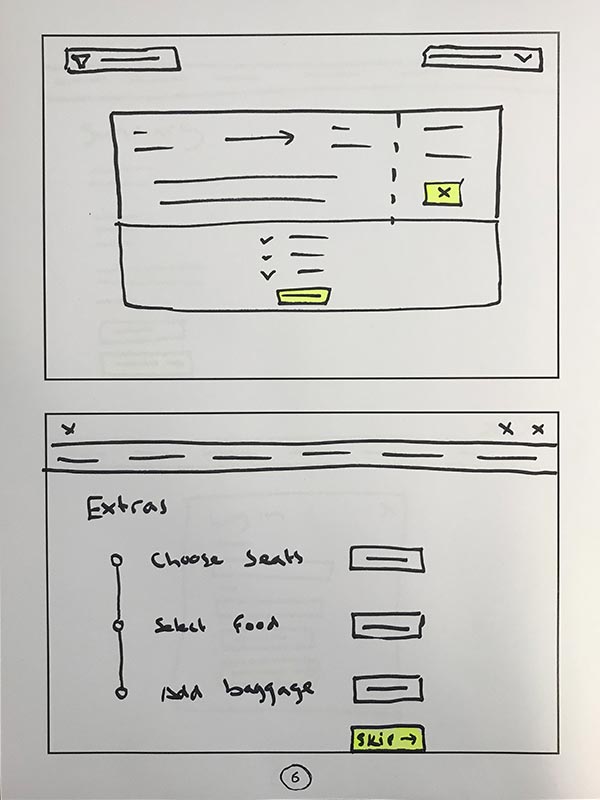 Extras
Choose Seats
Select Food
Add baggage
Skip →
6